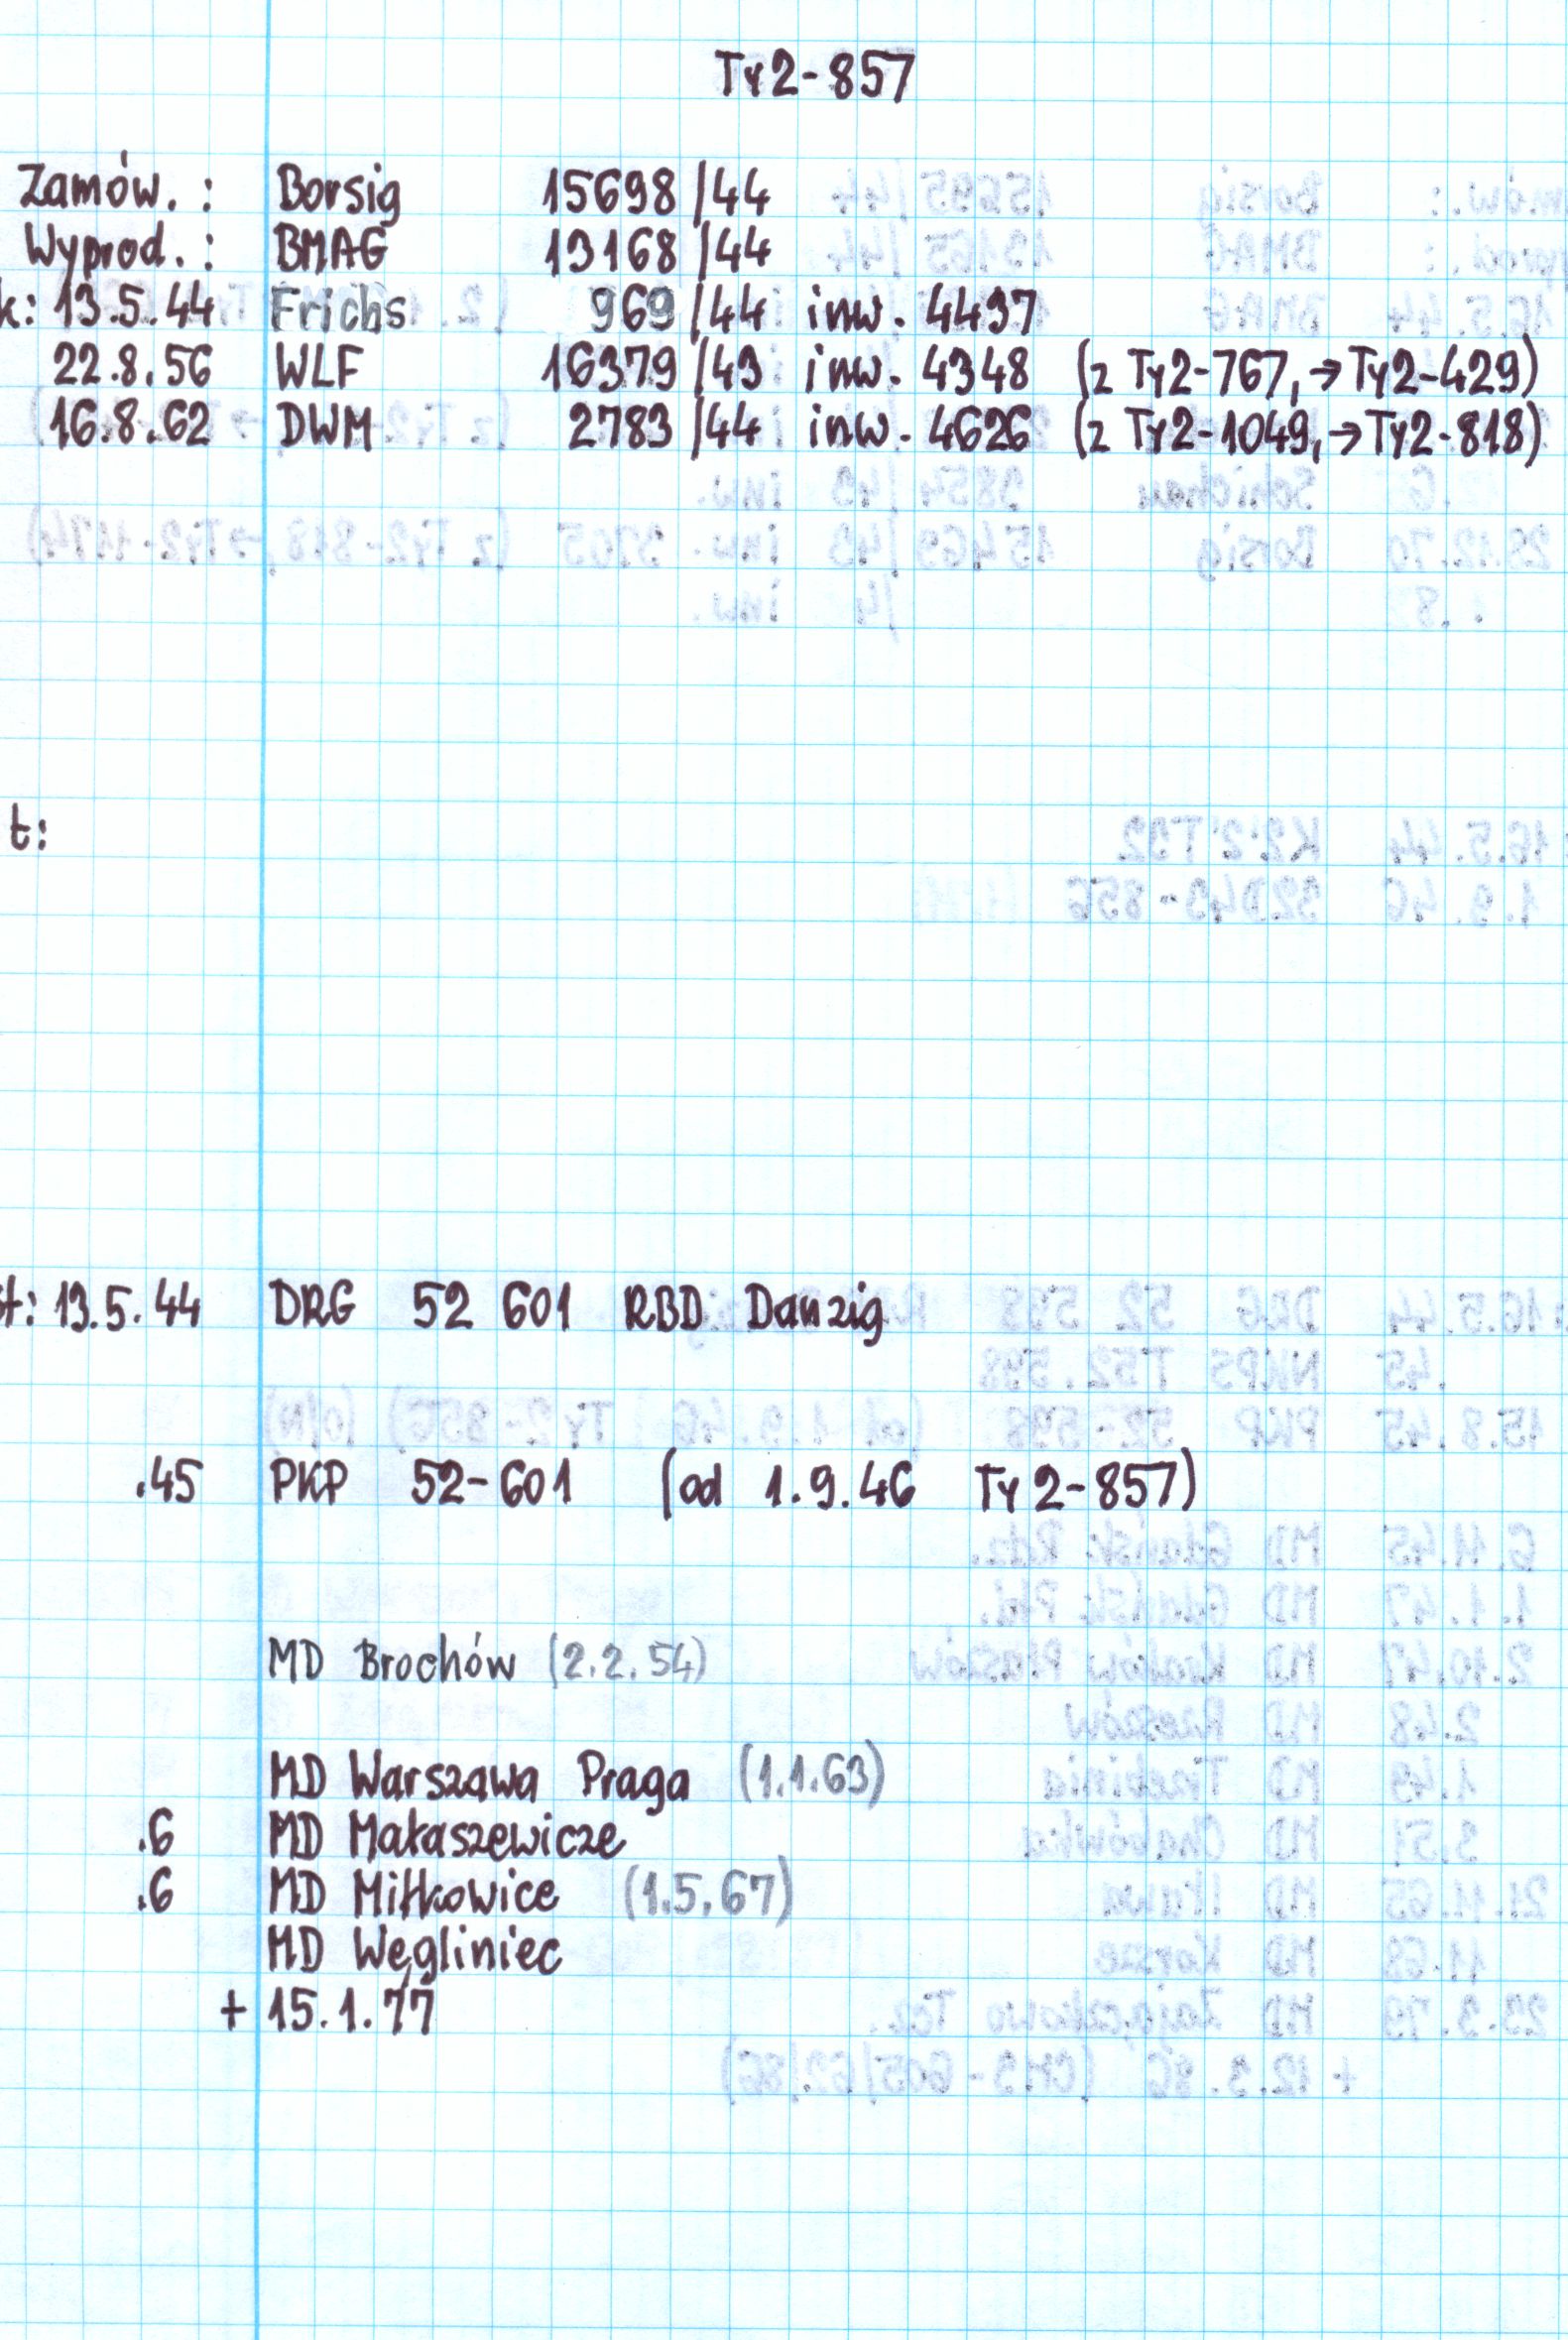 Ty2-857
Zamów. : Borsig 15698/44
Wyprod. : BMAG 13168/44
k: 13.5.44 Frichs 969/44 inw. 4437
22.8.56 WLF 16379/43 inw. 4348 (z Ty2-767, →Ty2-429)
16.8.62 DWM 2783/44 inw. 4626 (z Ty2-1049, →Ty2-818)
t:
t: 13.5.44 DRG 52 601 RBD Danzig
.45 PKP 52-601 (od 1.9.46 Ty2-857)
MD Brochów (2.2.54)
MD Warszawa Praga (1.1.63)
.6 MD Małaszewicze
.6 MD Miłkowice (1.5.67)
MD Węgliniec
+ 15.1.77